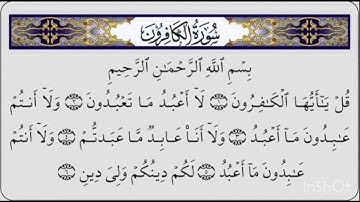 سُورَةُ الكَافِرُونَ
بِسْمِ اللَّهِ الرَّحْمَٰنِ الرَّحِيمِ
قُلْ يَٰٓأَيُّهَا ٱلْكَٰفِرُونَ ١ لَآ أَعْبُدُ مَا تَعْبُدُونَ ٢ وَلَآ أَنتُمْ
عَٰبِدُونَ مَآ أَعْبُدُ ٣ وَلَآ أَنَا۠ عَابِدٌ مَّا عَبَدتُّمْ ٤ وَلَآ أَنتُمْ
عَٰبِدُونَ مَآ أَعْبُدُ ٥ لَكُمْ دِينُكُمْ وَلِىَ دِينِ ٦
InShot